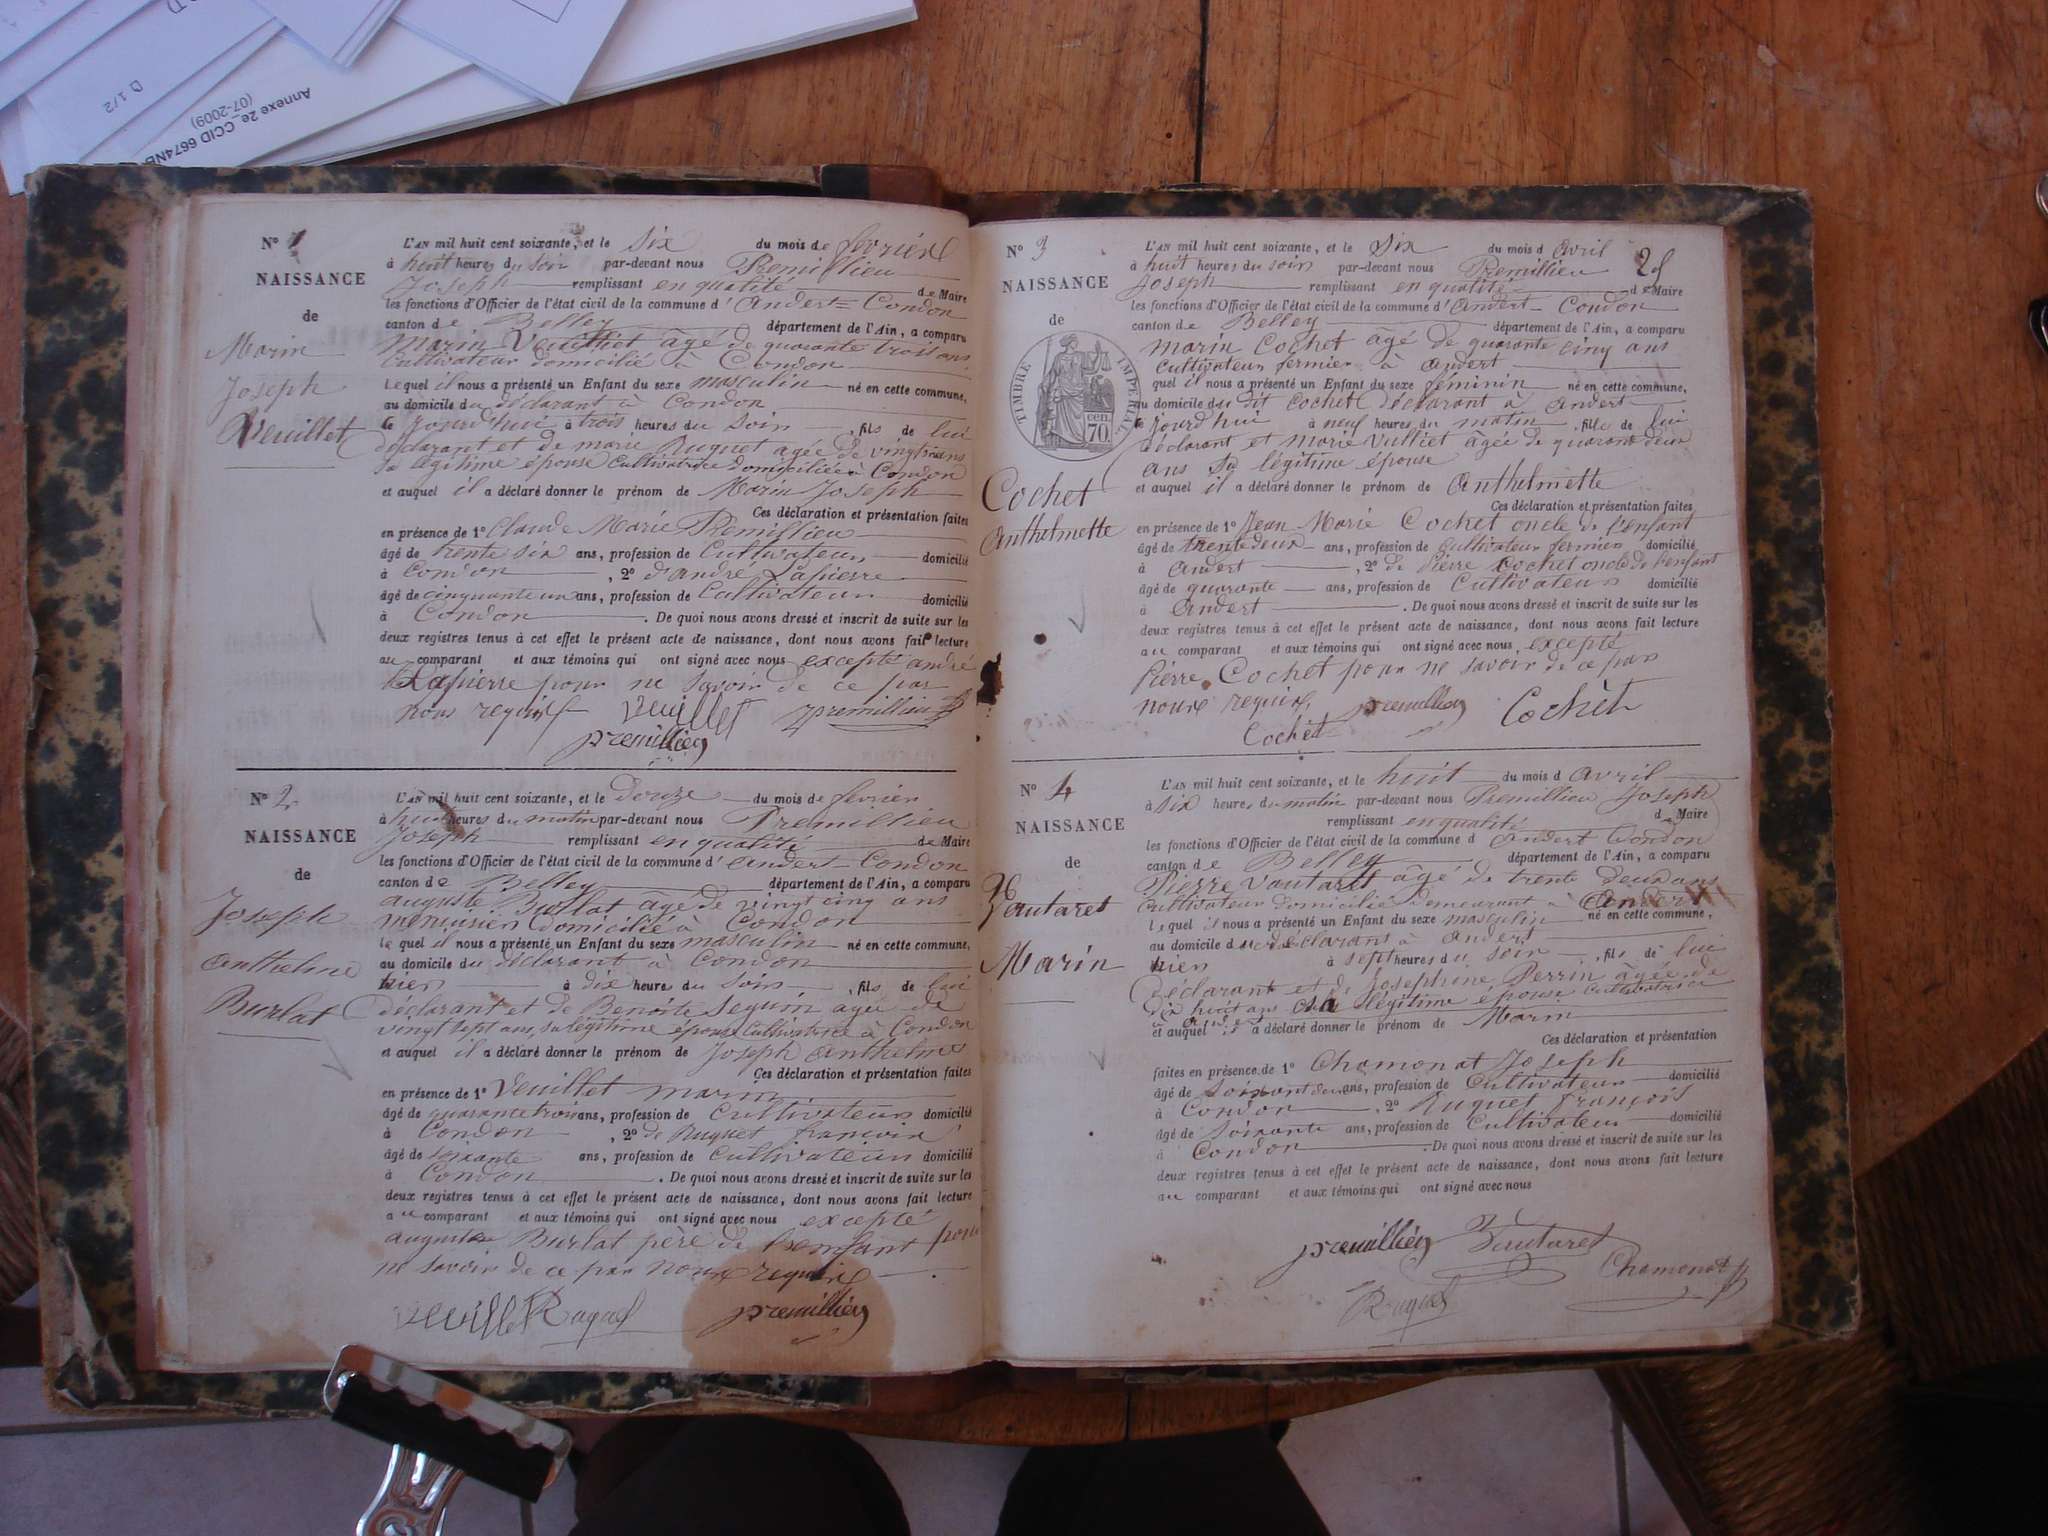 D 1/2
Annexe 2e CCID 6674NB
(07-2009)
N° 1
NAISSANCE
de
Marin
Joseph
Veuillet
L'AN mil huit cent soixante, et le six du mois de février
à huit heures du soir par-devant nous Premillieu
Joseph remplissant en qualité de Maire
les fonctions d'Officier de l'état civil de la commune d'Andert-Condon
canton de Belley département de l'Ain, a comparu
Marin Veuilliet âgé de quarante trois ans
cultivateur domicilié à Condon
lequel il nous a présenté un Enfant du sexe masculin né en cette commune,
au domicile du déclarant à Condon
ce jourd'hui à trois heures du soir, fils de lui
déclarant et de marie Ruguet agée de vingt ans
sa légitime épouse cultivatrice domiciliée à Condon
et auquel il a déclaré donner le prénom de Marin Joseph
Ces déclaration et présentation faites
en présence de 1° Claude Marie Premillieu
âgé de trente six ans, profession de Cultivateur domicilié
à Condon, 2° d'andré Lapierre
âgé de cinquante un ans, profession de Cultivateur domicilié
à Condon. De quoi nous avons dressé et inscrit de suite sur les
deux registres tenus à cet effet le présent acte de naissance, dont nous avons fait lecture
au comparant et aux témoins qui ont signé avec nous excepté andré
Lapierre pour ne savoir de ce par
nous requis veuillet premillieu
premillieu
N° 2
NAISSANCE
de
Joseph
Anthelme
Burlat
L'AN mil huit cent soixante, et le douze du mois de fevrier
à huit heures du matin par-devant nous Premillieu
Joseph remplissant en qualité de Maire
les fonctions d'Officier de l'état civil de la commune d'Andert-Condon
canton de Belley département de l'Ain, a comparu
auguste Burlat âgé de vingt cinq ans
menuisier domicilié à Condon
lequel il nous a présenté un Enfant du sexe masculin né en cette commune,
au domicile du déclarant à Condon
hier à dix heure du soir, fils de lui
déclarant et de Benoite Seguin agée de
vingt sept ans, sa légitime épouse cultivatrice à Condon
et auquel il a déclaré donner le prénom de Joseph Anthelme
Ces déclaration et présentation faites
en présence de 1° Veuillet marin
âgé de quarante trois ans, profession de Cultivateur domicilié
à Condon, 2° de Ruguet françois
âgé de soixante ans, profession de Cultivateur domicilié
à Condon. De quoi nous avons dressé et inscrit de suite sur les
deux registres tenus à cet effet le présent acte de naissance, dont nous avons fait lecture
au comparant et aux témoins qui ont signé avec nous excepté
auguste Burlat père de l'enfant pour
ne savoir de ce par nous requis
veuillet Ruguet premillieu
N° 3
NAISSANCE
de
TIMBRE IMPERIAL
70 cen.
Cochet
Anthelmette
L'AN mil huit cent soixante, et le six du mois d'avril
à huit heures du soir par-devant nous Premillieu
Joseph remplissant en qualité de Maire
les fonctions d'Officier de l'état civil de la commune d'Andert-Condon
canton de Belley département de l'Ain, a comparu
marin Cochet âgé de quarante cinq ans
cultivateur fermier à Andert
quel il nous a présenté un Enfant du sexe féminin né en cette commune,
au domicile du dit Cochet déclarant à andert
ce jourd'hui à neuf heures du matin, fille de lui
déclarant et Marie Vulliet âgée de quarante deux
ans sa légitime épouse
et auquel il a déclaré donner le prénom de Anthelmette
Ces déclaration et présentation faites
en présence de 1° Jean Marie Cochet oncle de l'enfant
âgé de trente deux ans, profession de cultivateur fermier domicilié
à Andert, 2° de Pierre Cochet oncle de l'enfant
âgé de quarante ans, profession de Cultivateur domicilié
à Andert. De quoi nous avons dressé et inscrit de suite sur les
deux registres tenus à cet effet le présent acte de naissance, dont nous avons fait lecture
au comparant et aux témoins qui ont signé avec nous excepté
Pierre Cochet pour ne savoir de ce par
nous requis premillieu Cochet
Cochet
N° 4
NAISSANCE
de
Vautaret
Marin
L'AN mil huit cent soixante, et le huit du mois d'avril
à six heures du matin par-devant nous Premillieu Joseph
remplissant en qualité de Maire
les fonctions d'Officier de l'état civil de la commune d'Andert Condon
canton de Belley département de l'Ain, a comparu
Pierre Vautaret âgé de trente deux ans
cultivateur domicilié demeurant à Andert
lequel il nous a présenté un Enfant du sexe masculin né en cette commune,
au domicile du déclarant à Andert
hier à sept heures du soir, fils de lui
déclarant et de Josephine Perrin âgée de
dix huit ans sa légitime épouse cultivatrice
à Andert
et auquel il a déclaré donner le prénom de Marin
Ces déclaration et présentation
faites en présence de 1° Chamonat Joseph
âgé de ans, profession de Cultivateur domicilié
à Condon, 2° Ruguet françois
âgé de soixante ans, profession de Cultivateur domicilié
à Condon. De quoi nous avons dressé et inscrit de suite sur les
deux registres tenus à cet effet le présent acte de naissance, dont nous avons fait lecture
au comparant et aux témoins qui ont signé avec nous
premillieu Vautaret
Chamonat
Ruguet